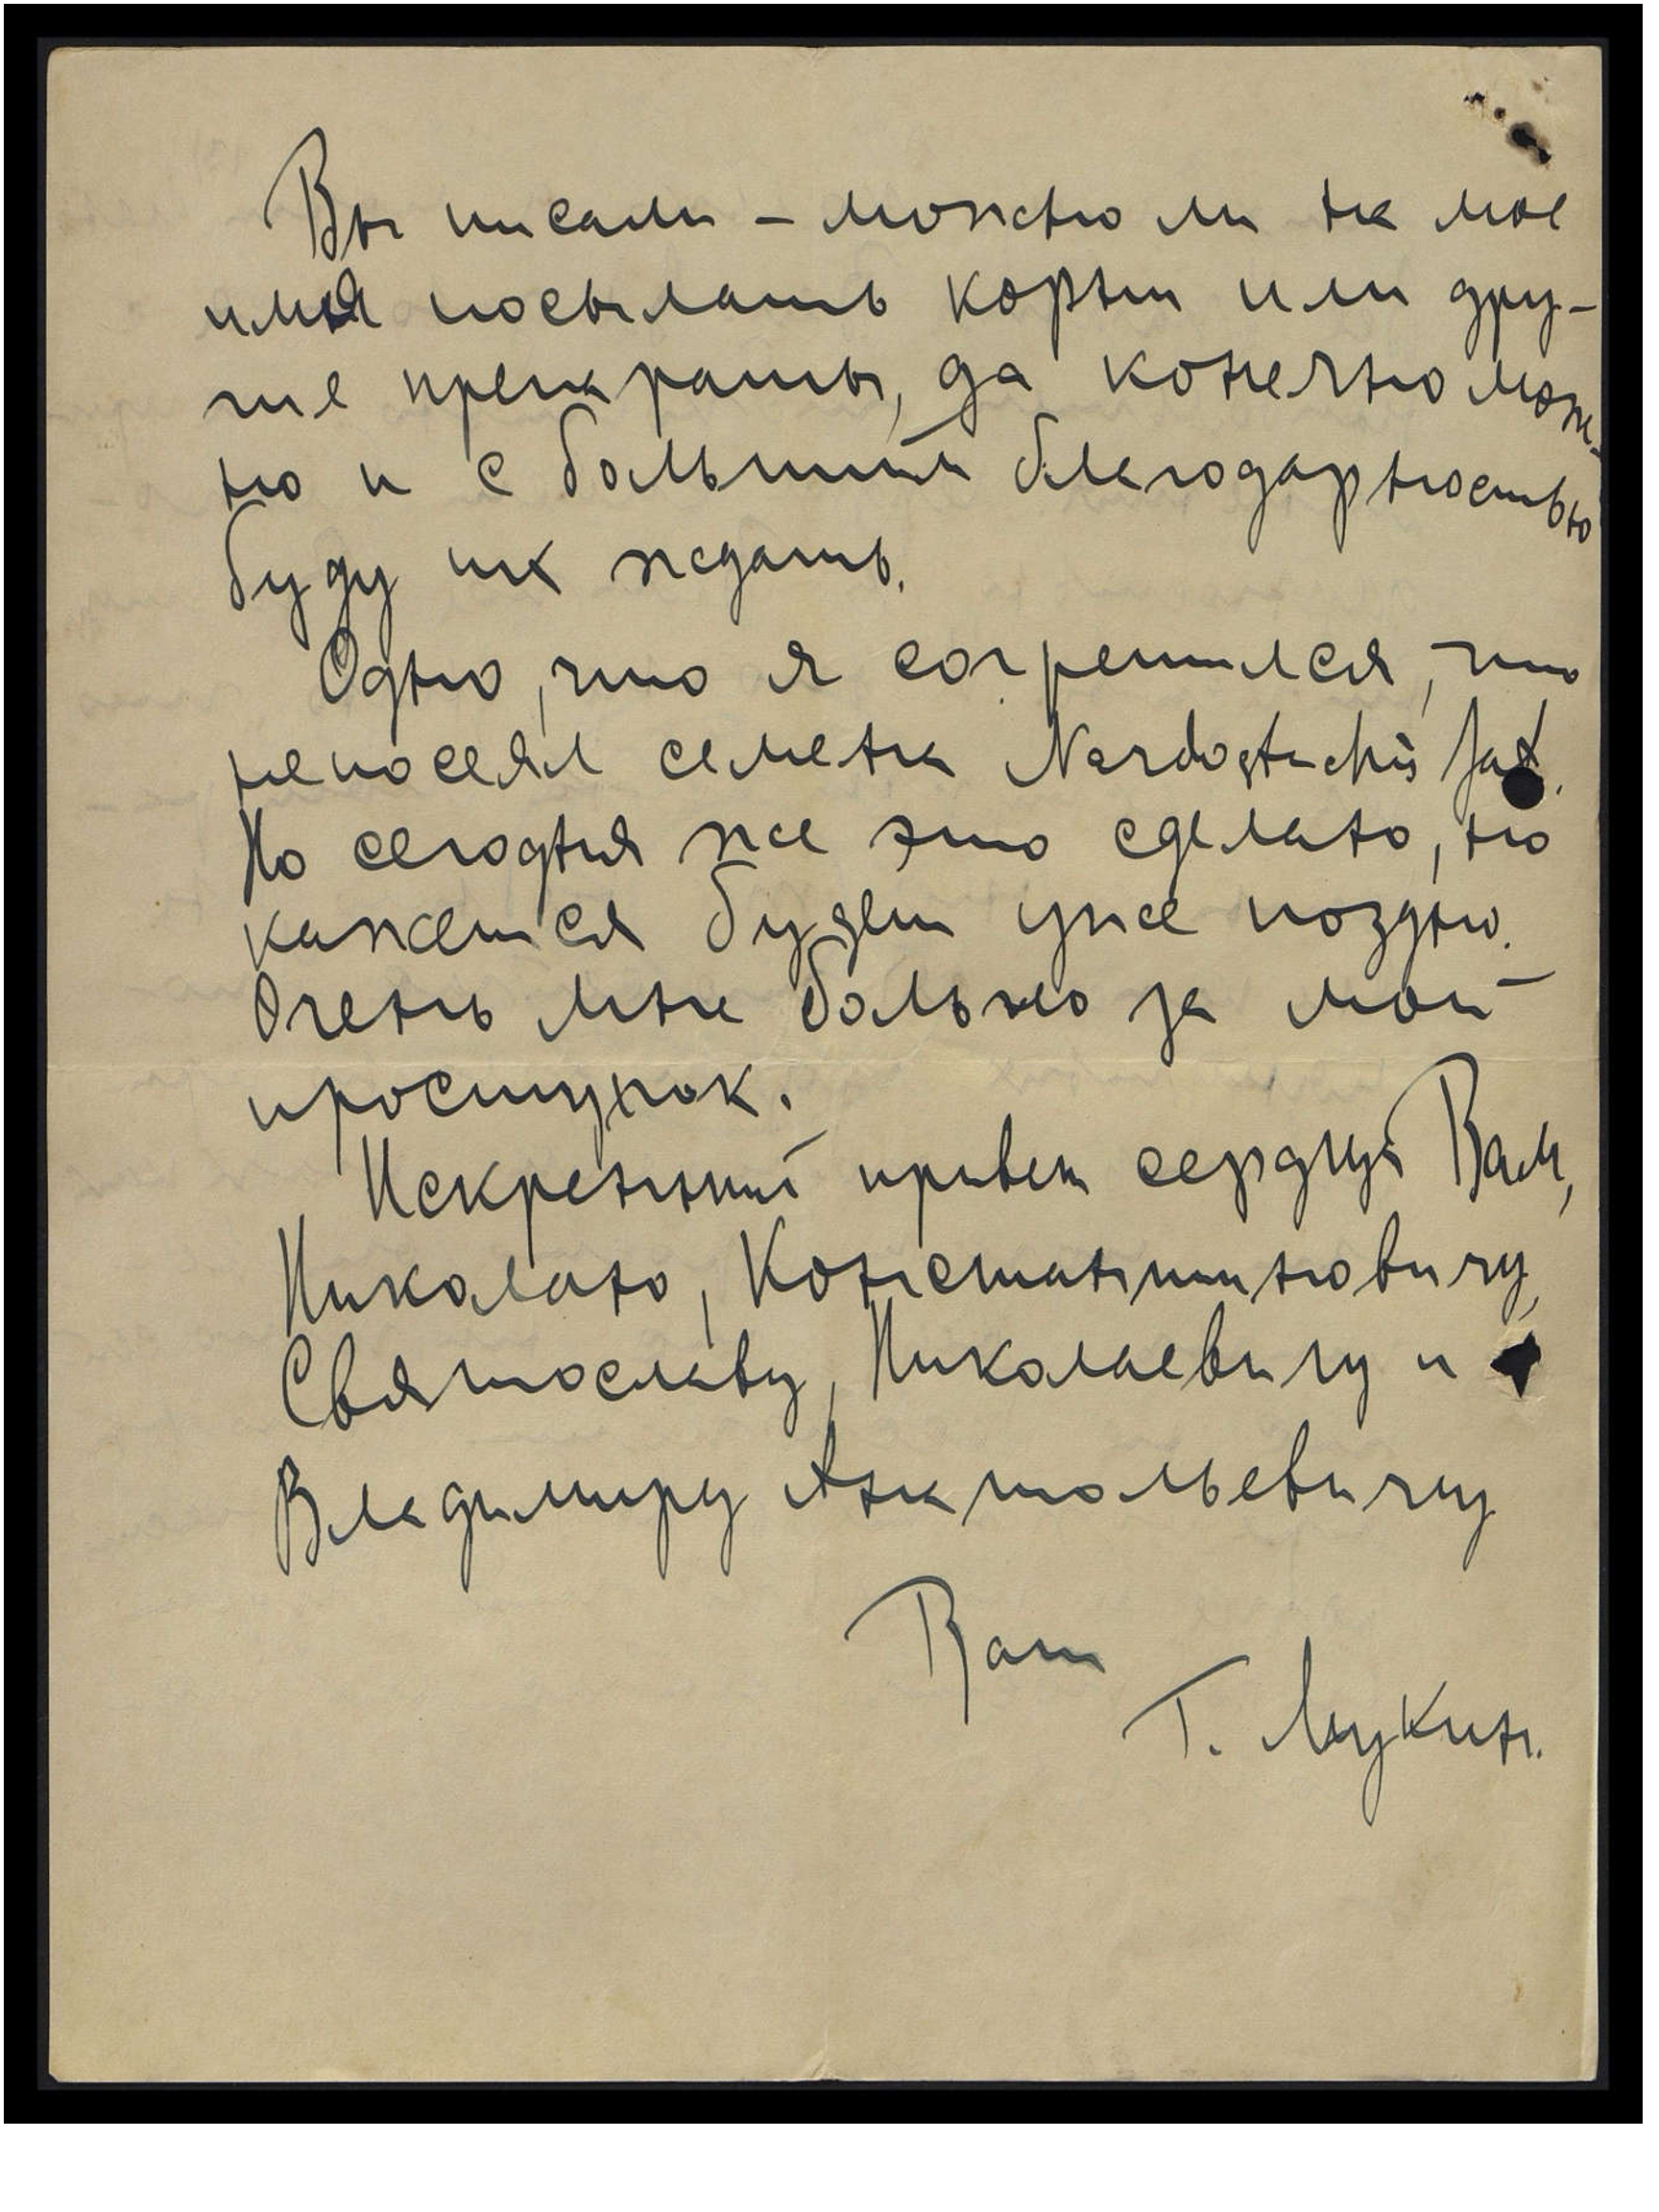 Вы писали – можно ли на мое
имя посылать корни или дру-
гие препараты, да конечно мож-
но и с большой благодарностью
буду их ждать.
Одно, что я согрешился, что
непосеял семена Nardostachis Jat.
Но сегодня же это сделано, но
кажется будет уже поздно.
Очень мне больно за мой
проступок.
Искренний привет сердца Вам,
Николаю, Константиновичу,
Святославу, Николаевичу и
Владимиру Анатольевичу
Ваш
Г. Лукин.